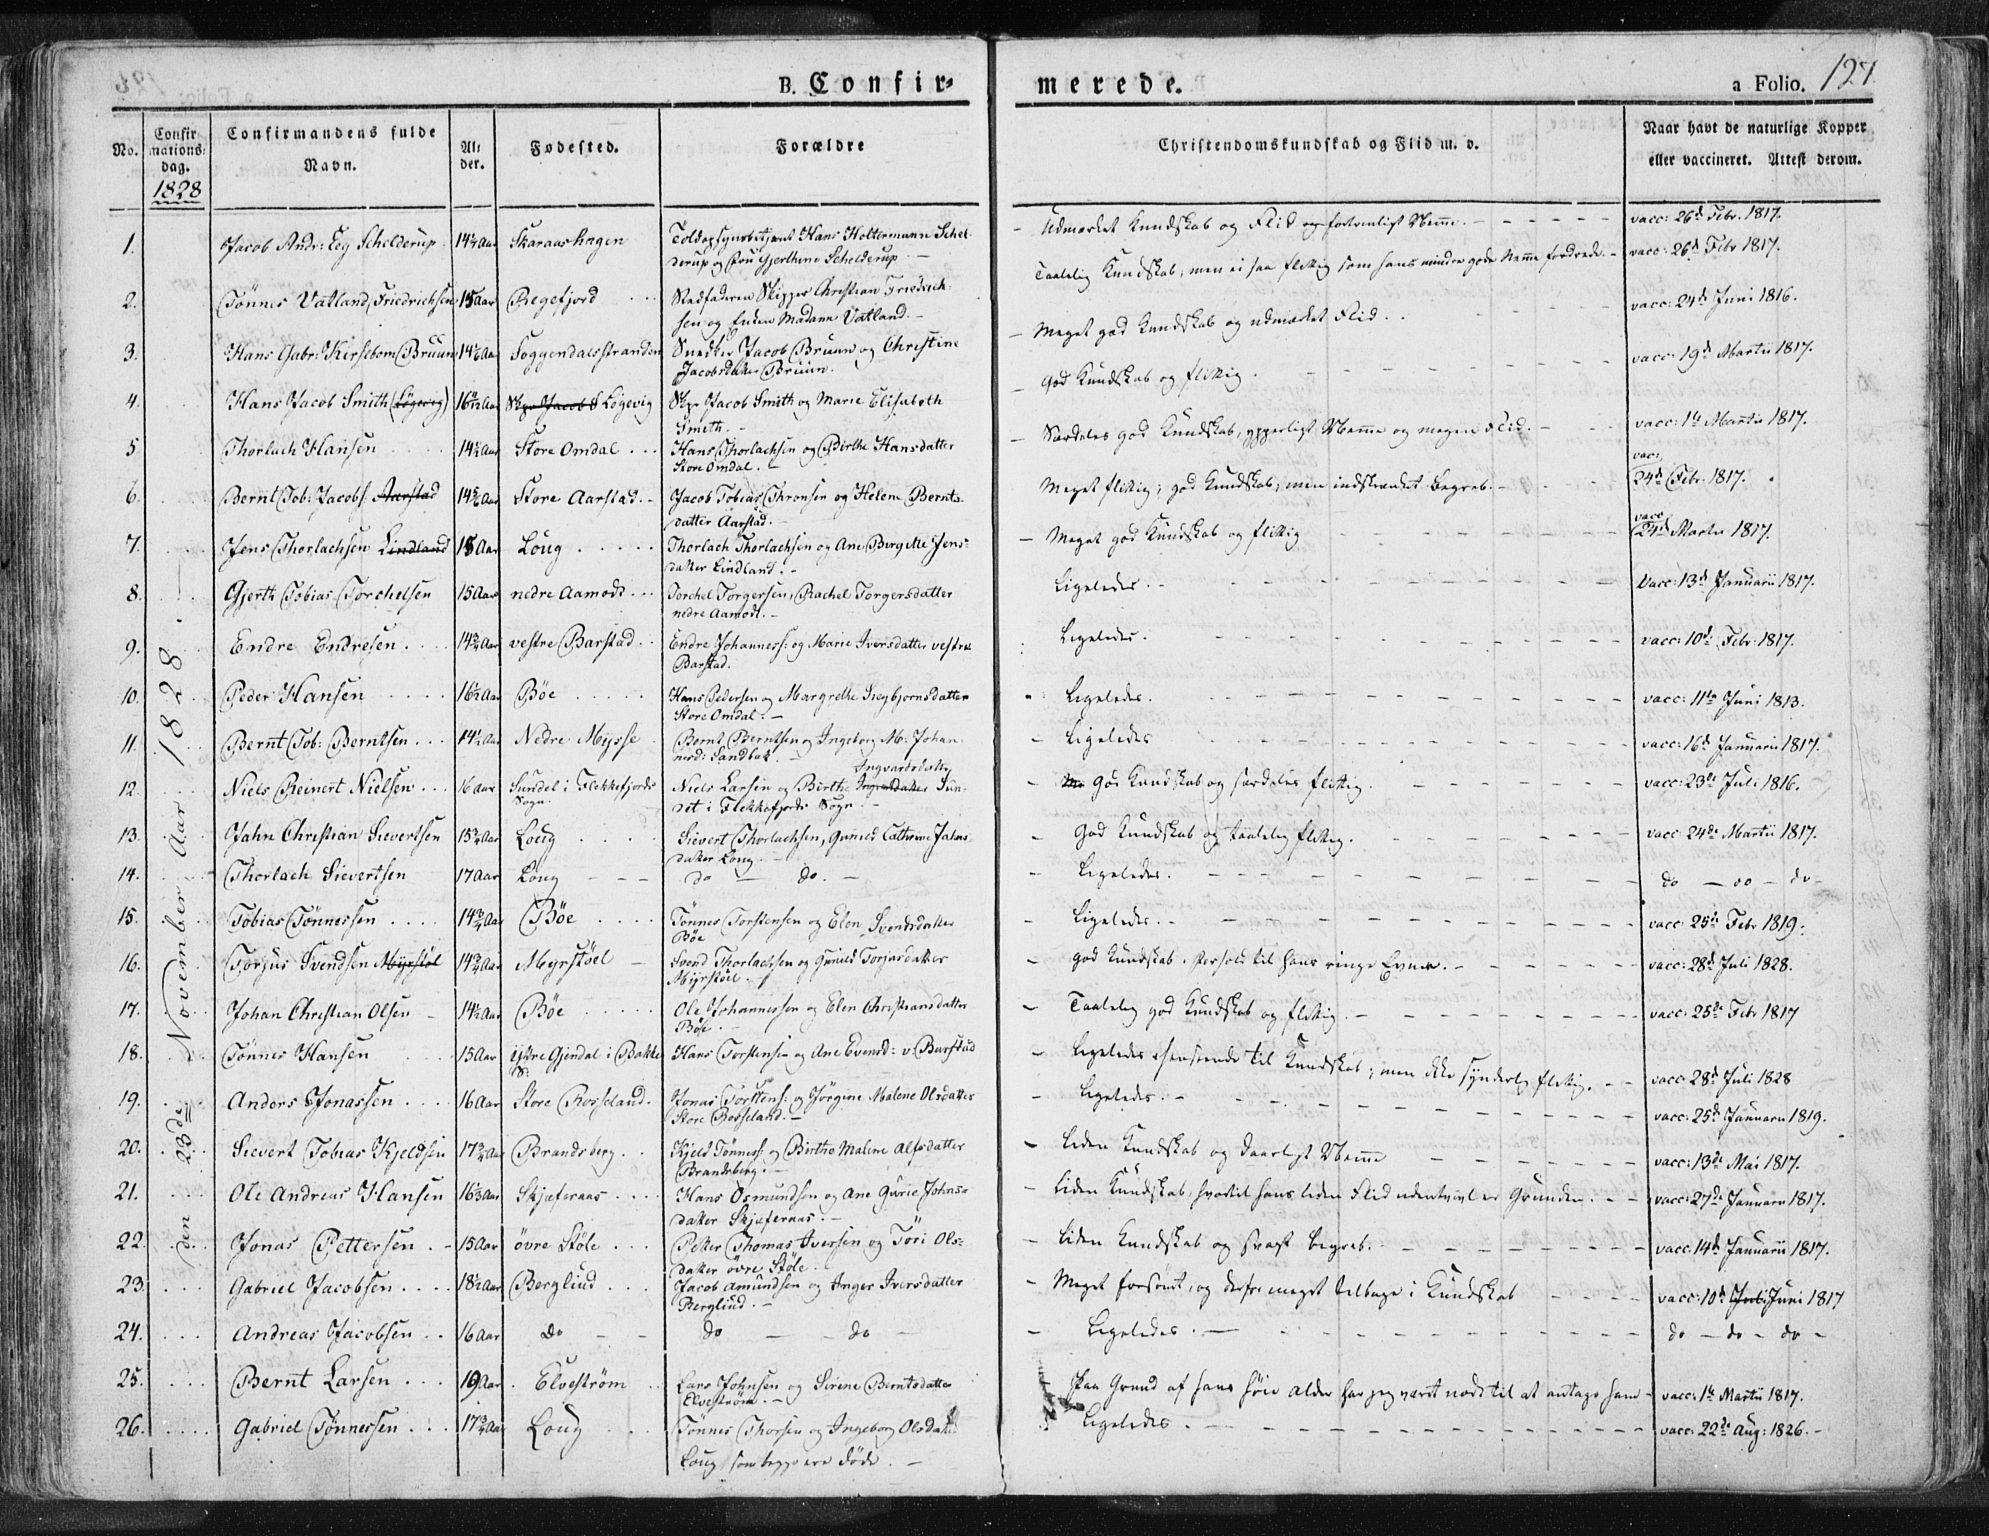 B. Confir-
merede.
a Folio. 127
No.
Confirmations-dag.
1828
Confirmandens fulde Navn.
Alder.
Fødested.
Forældre
Christendomskundskab og Flid m. v.
Naar havt de naturlige Kopper eller vaccineret. Attest derom.
den 23de November Aar 1828.
1. Jacob Andr: Eeg Schelderup 14½ Aar Skaraashagen Toldopsynsbetjent Hans Holtermann Schel-
derup og Gjerthine Schelderup. Udmærket Kundskab og Flid og fortrinligt Nemme. vacc: 26d Febr. 1817.
2. Tönnes Vatland Friedrichsen 15 Aar Regefjord Stedfaderen Skipper Christian Friedrich-
sen og Enken Madame Vatland. Taalelig Kundskab, men ei saa flittig som hans mindre gode Nemme fordrede. vacc: 26d Febr 1817.
3. Hans Gabr: Kirsebom Bruun 14½ Aar Soggendalsstranden Snedker Jacob Bruun og Christine
Jacobsdatter Bruun. Meget god Kundskab og udmærket Flid. vacc: 24d Juni 1816.
4. Hans Jacob Smith (Løgevig) Aar Skpr Jacob S Løgevig Skpr Jacob Smith og Marie Elisabeth
Smith. God Kundskab og flittig. vacc: 19d Martii 1817.
5 Thorlach Hansen 14½ Aar Store Omdal Hans Thorlachsen og Birthe Hansdatter
Store Omdal. Særdeles god Kundskab, ypperligt Nemme og megen Flid. vacc: 1d Martii 1817.
6. Bernt Tob: Jacobs: Aarstad Aar Store Aarstad. Jacob Tobias Thronsen og Helene Bernts-
datter Aarstad. Meget flittig; god Kundskab, men indskrænket Begreb. vacc: 24d Febr. 1817.
7. Jens Thorlachsen Lindland Aar Loug Thorlach Thorlachsen og Ane Birgitte Jens-
datter Lindland. Meget god Kundskab og flittig vacc 24d Martii 1817.
8. Gjerth Tobias Torchelsen 15 Aar nedre Aamodt Torchel Torgersen, Rachel Torgersdatter
nedre Aamodt. Ligeledes. Vacc: 13d Januarii 1817.
9. Endre Endresen. 14¾ Aar vestre Barstad Endre Johanness: og Marie Iversdatter vestre
Barstad. Ligeledes. vacc: 10d Febr: 1817.
10. Peder Hansen 16½ Aar Böe Hans Pedersen og Margrethe Siegbjornsdatter
Store Omdal. Ligeledes. vacc: 11te Juni 1813.
11. Bernt Tob: Berntsen 14½ Aar Nedre Mysse Bernt Berntsen og Ingeborg M: Johan-
nesd: Sandbæk. Ligeledes vacc: 16d Januarii 1817.
12. Niels Reinert Nielsen 16 Aar Sundet i Flekkefjords
Sogn. Niels Larsen og Birthe Ingvardsdatter Sun-
det i Flekkefjords Sogn. God Kundskab og særdeles flittig. vacc: 23de Juli 1816.
13. Jahn Christian Sievertsen 15¾ Aar Loug Sievert Thorlachsen, Gunild Cathrine Jahns-
datter Loug. God Kundskab og taalelig flittig. vacc: 24de Martii 1817.
14. Thorlach Sievertsen 17 Aar Loug do — do. Ligeledes. do — do — do
15. Tobias Tönnessen 14¾ Aar Böe Tönnes Torstensen og Elen Svendsdatter
Böe Ligeledes. vacc: 25de Febr 1819.
16. Torjus Svendsen Myrstöl 14¾ Aar Myrstöel Svend Thorlachsen og Gunild Torjusdatter
Myrstöel. god Kundskab i Forhold til hans ringe Evner. vacc: 28d Juli 1828.
17. Johan Christian Olsen 14½ Aar Böe Ole Johannessen og Elen Christiansdatter
Böe. Taalelig god Kundskab og flittig. vacc: 25de Febr 1817
18. Tönnes Hansen 15 Aar Gjendal i Bakke
S: Hans Torstensen og Ane Evensd: v: Barstad Ligeledes henseende til Kundskab; men ikke synderlig flittig. vacc: 28d Juli 1828
19. Anders Jonassen 16 Aar Store Rosseland. Jonas Torstens: og Jørgine Malene Olsdatter
Store Rosseland. Ligeledes. vacc: 25d Januarii 1819.
20. Sievert Tobias Kjeldsen 17¾ Aar Brandsberg Kjeld Tönness og Birthe Malene Alfsdatter
Brandsberg. Liden Kundskab og daarligt Nemme vacc: 13de Mai 1817.
21. Ole Andreas Hansen Aar Skjæferaas Hans Osmundsen og Ane Gurie Johns-
datter Skjæferaas. Liden Kundskab, hvortil hans liden Flid udentvivl er Grunden. vacc: 27de Januarii 1817.
22. Jonas Pettersen 15 Aar övre Stöle Petter Thomas Iversen og Töri Ols-
datter övre Stöle. Liden Kundskab og svagt Begreb. vacc. 14d Januarii 1817.
23. Gabriel Jacobsen 18½ Aar Berglind Jacob Amundsen og Inger Iversdatter
Berglind. Meget forsömt, og derfor meget tilbage i Kundskab vacc: 10d Juli Juni 1817
24. Andreas Jacobsen 16 Aar Do do — do Ligeledes. do — do — do
25. Bernt Larsen 19 Aar. Elveström Lars Johnsen og Sirene Berntsdatter
Elveström. Paa Grund af hans höie Alder har jeg været nödt til at antage ham vacc: 1d Martii 1817.
26. Gabriel Tönnessen 17¾ Aar Loug Tönnes Thorsen og Ingeborg Olsdatter
Loug, som begge ere döde. Ligeledes vacc: 22de Aug: 1826.